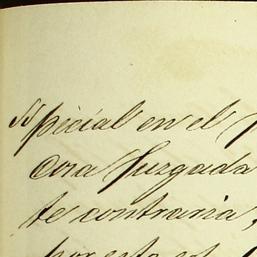 special en el
cosa Juzgada
te contraria,
por esta